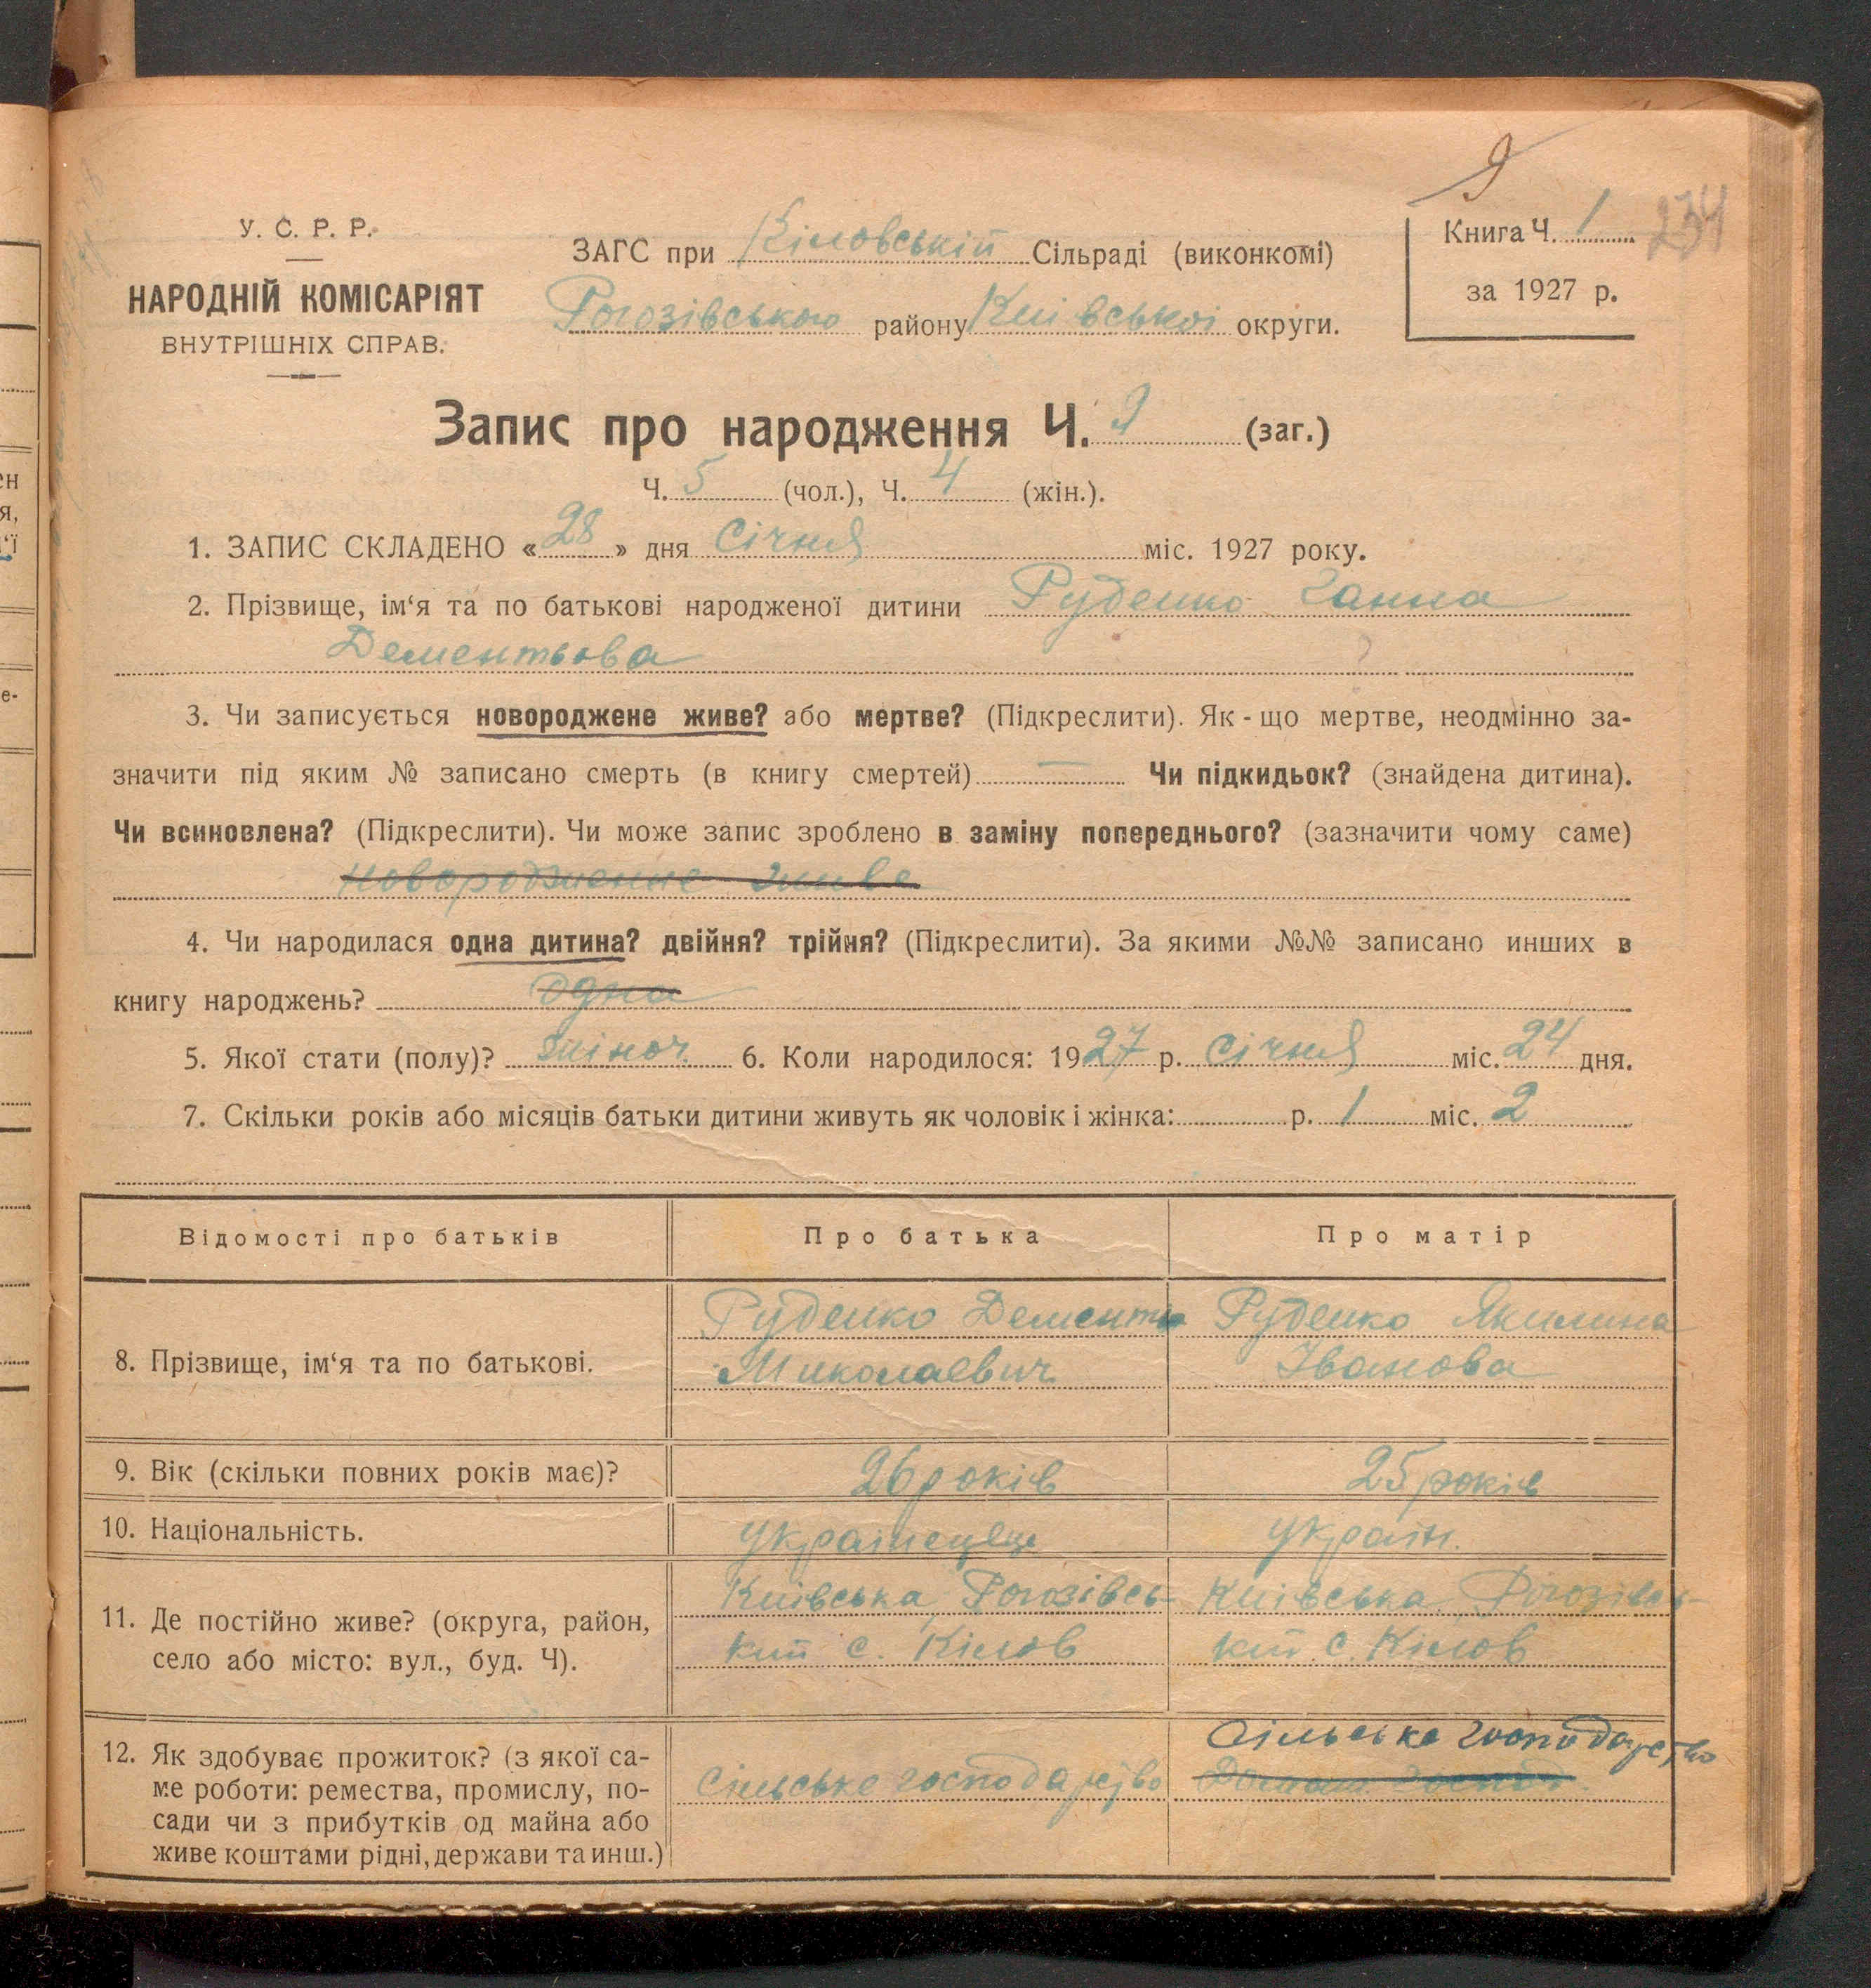 9
У. С. Р. Р.
НАРОДНІЙ КОМІСАРІЯТ
ВНУТРІШНІХ СПРАВ.
ЗАГС при Кіловській Сільраді (виконкомі)
Рогозівського району Київської округи.
Книга Ч. 1
234
за 1927 р.
Запис про народження Ч. 9 (заг.)
Ч. 5 (чол.), Ч. 4 (жін.).
1. ЗАПИС СКЛАДЕНО «28» дня Січня міс. 1927 року.
2. Прізвище, ім‘я та по батькові народженої дитини Руденко Ганна
Дементьова
3. Чи записується новороджене живе? або мертве? (Підкреслити). Як-що мертве, неодмінно за-
значити під яким № записано смерть (в книгу смертей) — Чи підкидьок? (знайдена дитина).
Чи всиновлена? (Підкреслити). Чи може запис зроблено в заміну попереднього? (зазначити чому саме)
новородженне живе
4. Чи народилася одна дитина? двійня? трійня? (Підкреслити). За якими №№ записано инших в
книгу народжень? одна
5. Якої стати (полу)? жіноч. 6. Коли народилося: 1927 р. Січня міс. 24 дня.
7. Скільки років або місяців батьки дитини живуть як чоловік і жінка: р. 1 міс. 2
Відомості про батьків Про батька Про матір
8. Прізвище, ім‘я та по батькові.
Руденко Дементь Руденко Якилина
Миколаевич Іванова
9. Вік (скільки повних років має)? 26 років 25 років
10. Національність. Українець Україн.
11. Де постійно живе? (округа, район,
село або місто: вул., буд. Ч).
Київська Рогозівсь- Київська Рогозівсь-
кий с. Кілов кий с. Кілов
12. Як здобуває прожиток? (з якої са-
ме роботи: ремества, промислу, по-
сади чи з прибутків од майна або
живе коштами рідні, держави та инш.)
Сільське господарство Сільське господарство
Домашн. господ.